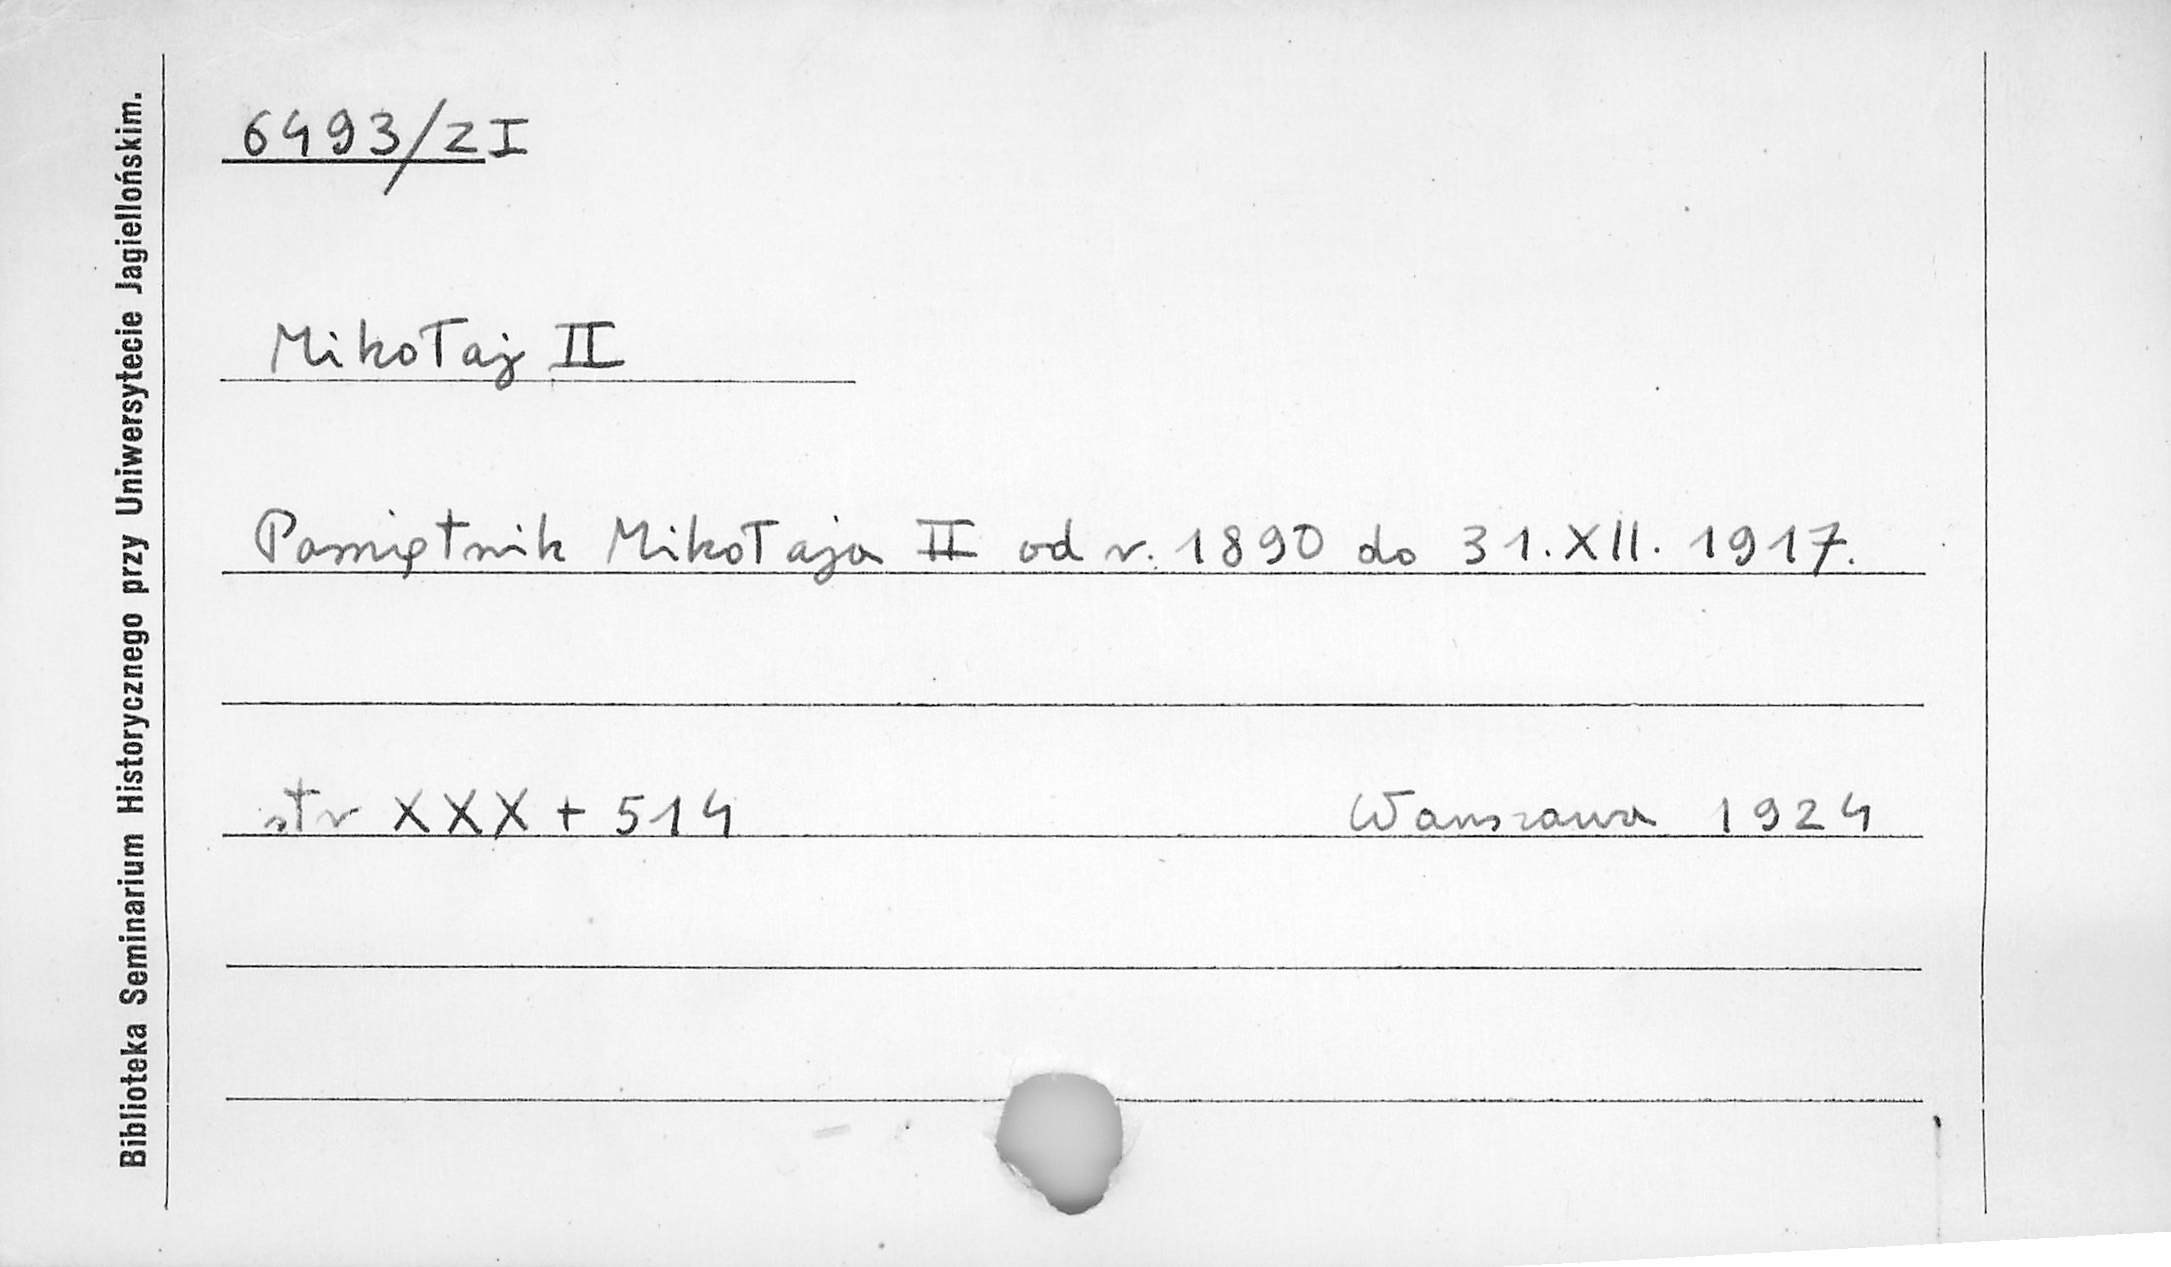 Biblioteka Seminarium Historycznego przy Uniwersytecie Jagiellońskim.
6493/ZI
Mikołaj II
Pamiętnik Mikołaja II od r. 1890 do 31. XII. 1917.
str XXX + 514 Warszawa 1924